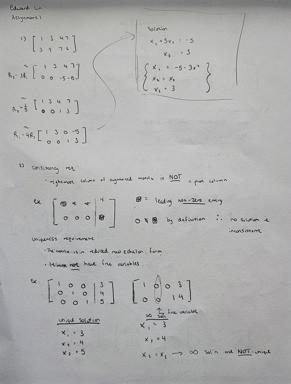 Edward Lin
Assignment 1
1) [ 1 3 4 7
3 9 7 6 ]
R₂ - 3R₁ [ 1 3 4 7
0 0 -5 -15 ]
[ 1 3 4 7
0 0 1 3 ]
R₁ - 4R₂ [ 1 3 0 -5
0 0 1 3 ]
Solution
x₁ + 3x₂ = -5
x₃ = 3
{ x₁ = -5 - 3x₂
x₂ = x₂
x₃ = 3 }
2) Consistency req:
- rightmost column of augmented matrix is NOT a pivot column
ex.
= leading non-zero entry
by definition ∴ no solution &
inconsistent
Uniqueness requirement
- The matrix is in reduced row echelon form
- not have free variables
ex:
[ 1 0 0 3
0 1 0 4
0 0 1 5 ]
[ 1 0 0 3
0 0 1 4 ]
↑ free variable
Unique Solution
x₁ = 3
x₂ = 4
x₃ = 5
∞ Soln
x₁ = 3
x₃ = 4
x₂ = x₂ → ∞ sol'n and NOT unique